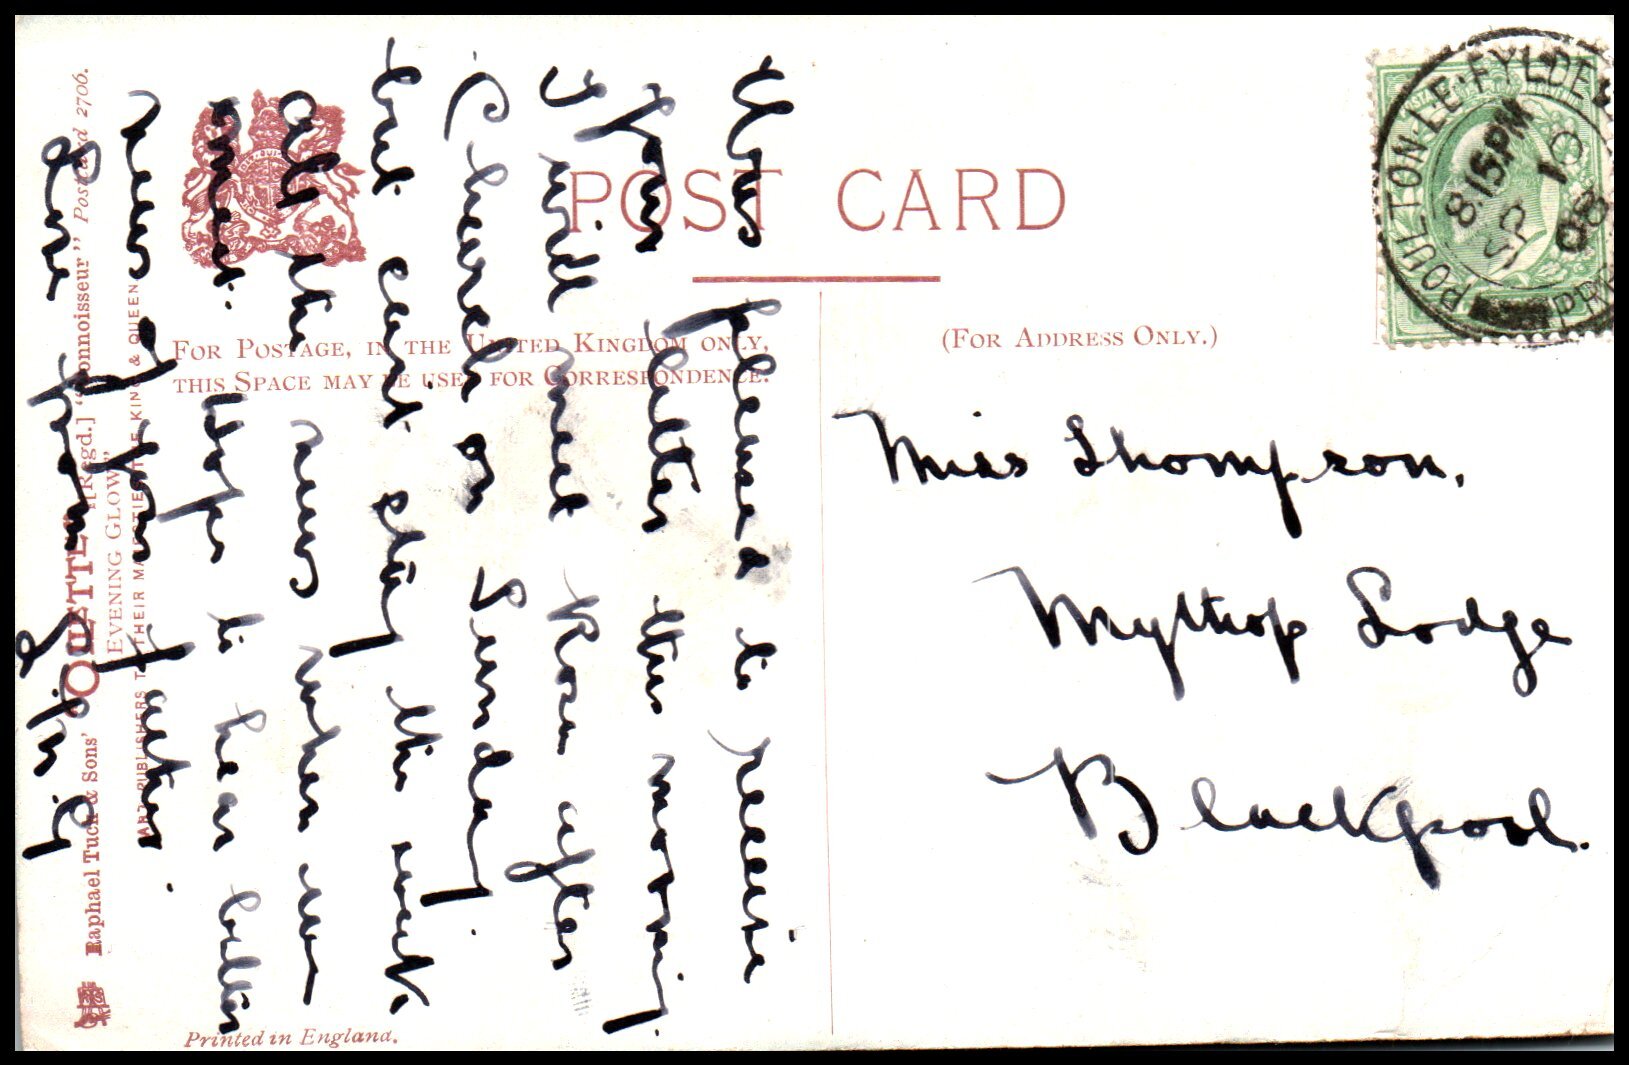 POST CARD
FOR POSTAGE, IN THE UNITED KINGDOM ONLY,
THIS SPACE MAY BE USED FOR CORRESPONDENCE.
(FOR ADDRESS ONLY.)
POULTON-LE-FYLDE
8.15PM
SP 10
08
Miss Thompson,
Mythop Lodge
Blackpool.
Was pleased to receive
your letter this morning.
I will meet Rosa after
Church on Sunday.
but cant stay the
all the news when we
meet. Hope to hear better
news of your father.
Love from
Raphael Tuck & Sons' "OILETTE" [Regd.] "Connoisseur" Postcard 2706.
"EVENING GLOW"
ART PUBLISHERS TO THEIR MAJESTIES THE KING & QUEEN
Printed in England.